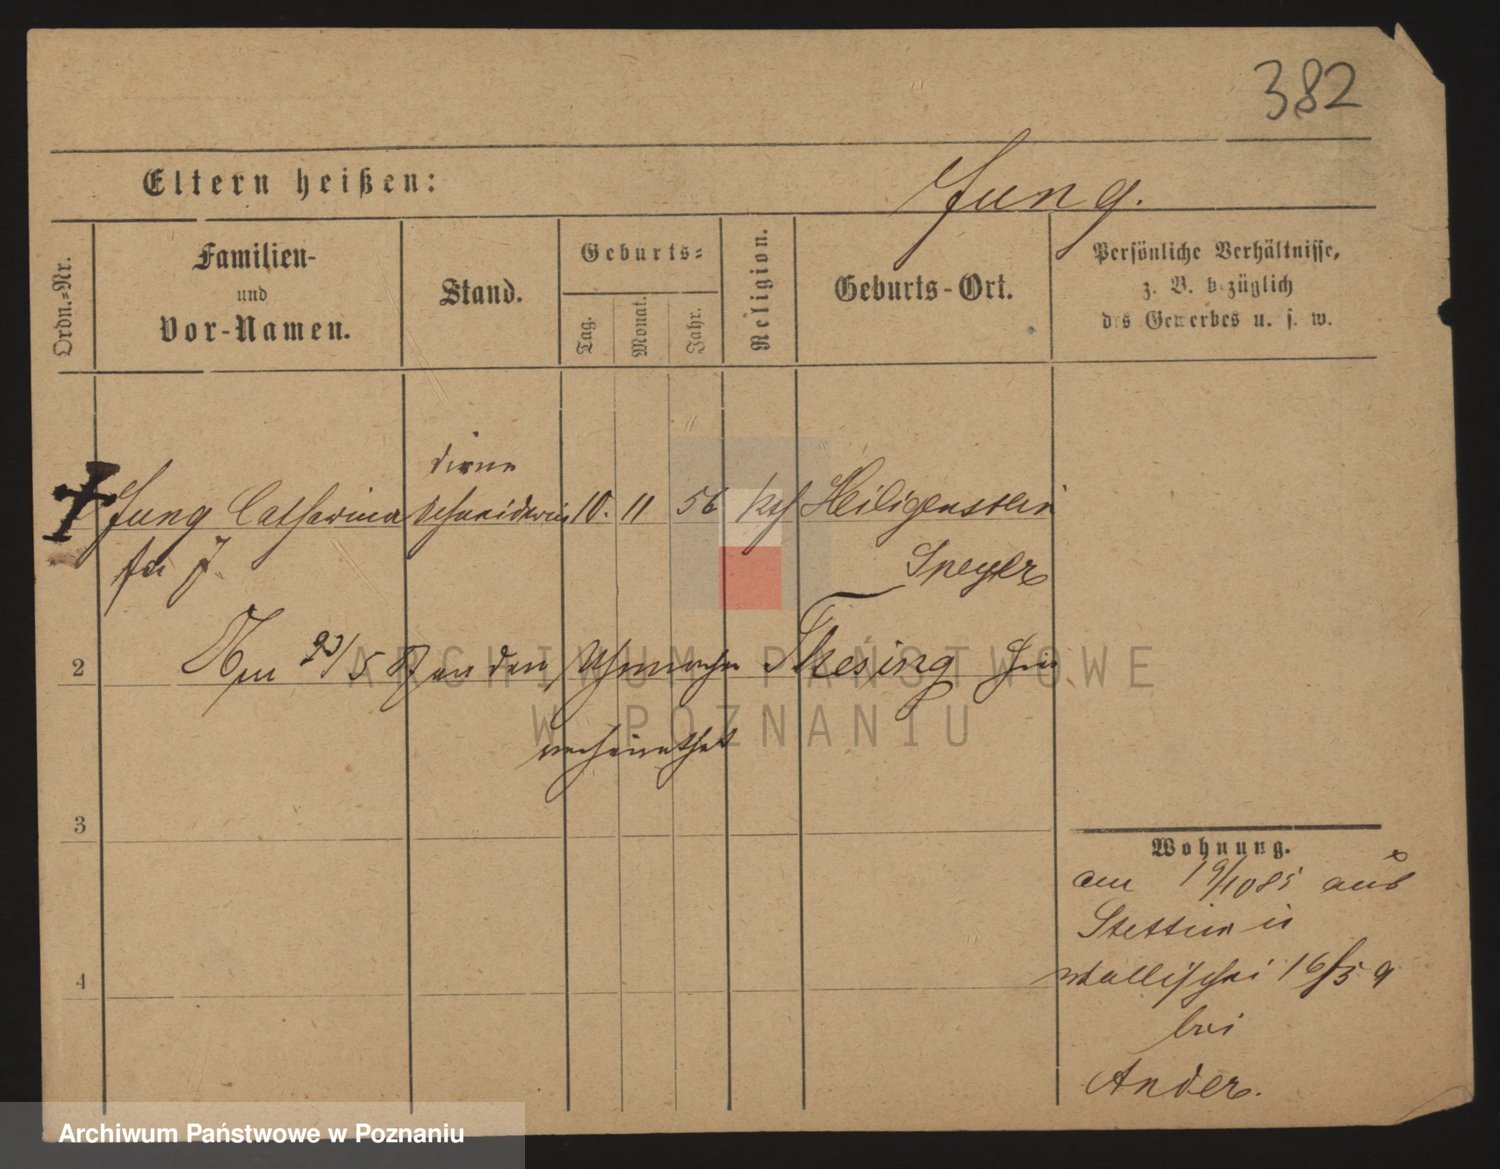 382
Eltern heißen:
Jung.
Ordn.-Nr.
Familien-
und
Vor-Namen.
Stand.
Geburts-
Tag.
Monat.
Jahr.
Religion.
Geburts-Ort.
Persönliche Verhältnisse,
z. B. bezüglich
des Gewerbes u. s. w.
dirne
Jung Catharina Schneiderin 10. 11 56 kth Heiligenstein
Speyer
2
Am 23/5 an den Uhrmacher Thesing hier
verheirathet
3
Wohnung.
am 19/10 85 aus
Stettin n
4
Wallischei 16/5 a
bei
Ander.
ARCHIWUM PAŃSTWOWE
W POZNANIU
Archiwum Państwowe w Poznaniu